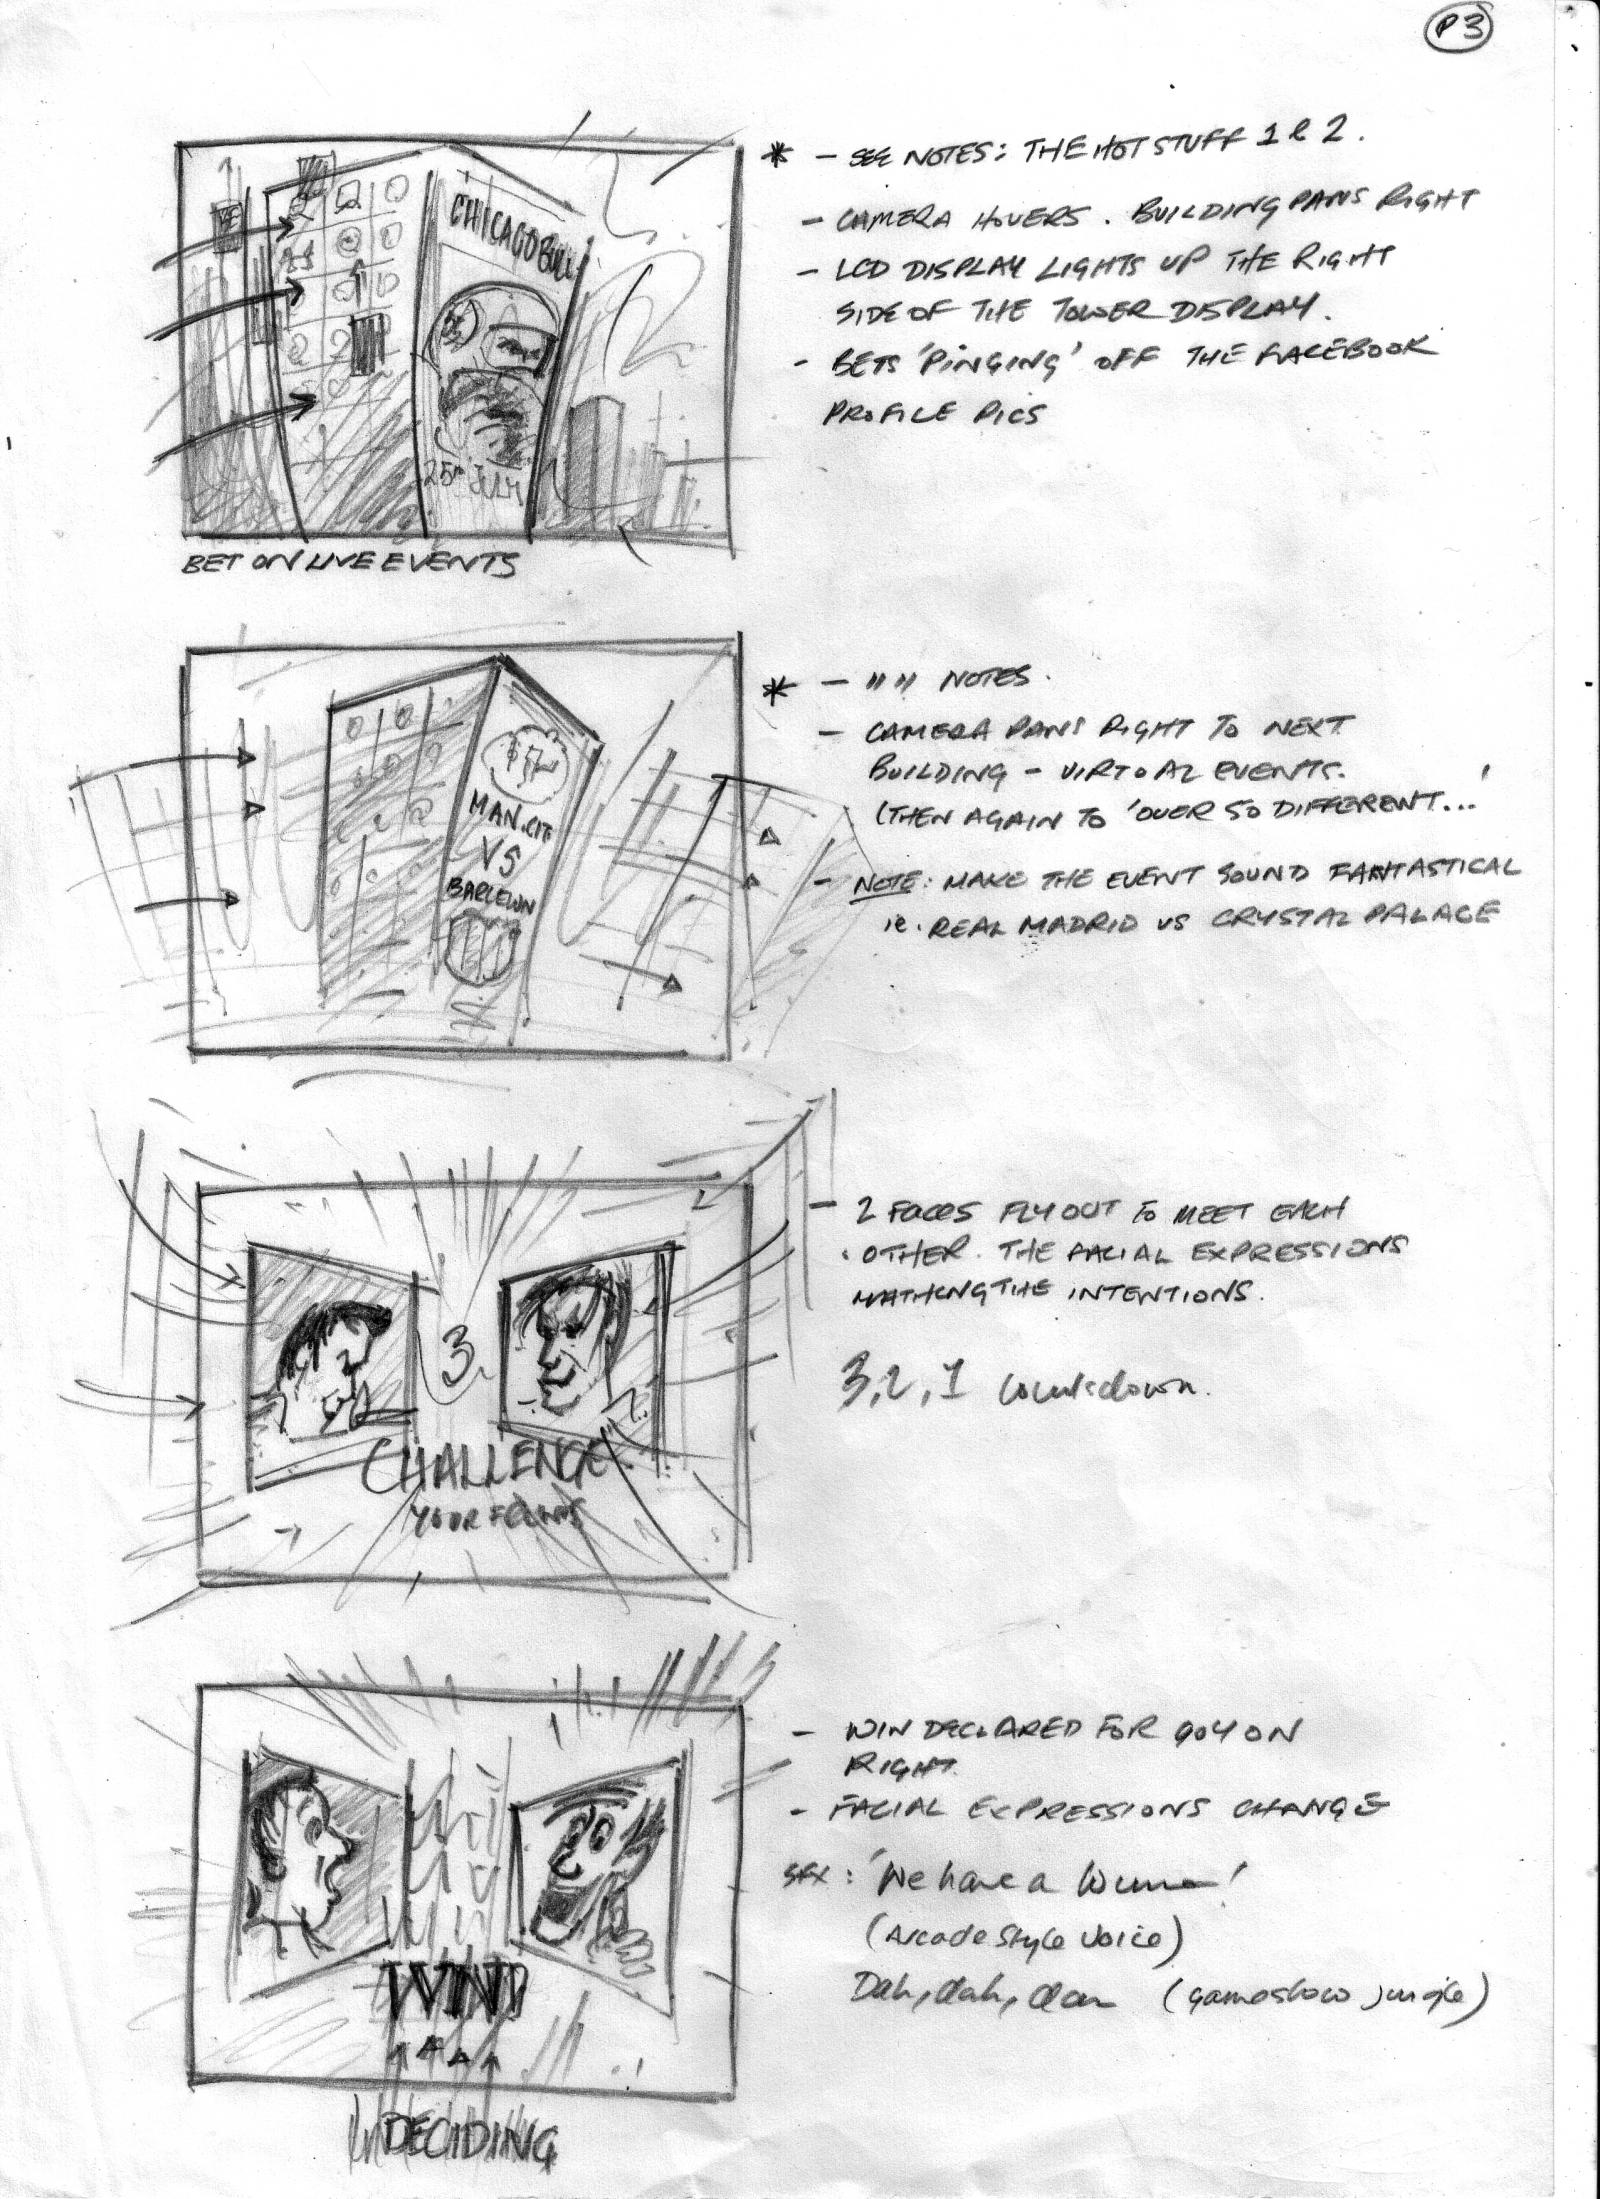 P3
* - SEE NOTES: THE HOT STUFF 1 & 2.
- CAMERA HOVERS. BUILDING PANS RIGHT
- LCD DISPLAY LIGHTS UP THE RIGHT
SIDE OF THE TOWER DISPLAY.
- BETS 'PINGING' OFF THE FACEBOOK
PROFILE PICS
CHICAGO BULLS
25TH JULY
BET ON LIVE EVENTS
* - " " NOTES.
- CAMERA PANS RIGHT TO NEXT
BUILDING - VIRTUAL EVENTS.
(THEN AGAIN TO 'OVER 50 DIFFERENT...'
- NOTE: MAKE THE EVENT SOUND FANTASTICAL
ie. REAL MADRID VS CRYSTAL PALACE
MAN. CIT
VS
- 2 FACES FLY OUT TO MEET EACH
OTHER. THE FACIAL EXPRESSIONS
MATHCNG THE INTENTIONS.
3, 2, 1 countdown.
3
CHALLENGE
YOUR FRIENDS
- WIN DECLARED FOR GUY ON
RIGHT.
- FACIAL EXPRESSIONS CHANGE
SFX: 'We have a Winner!'
(Arcade Style Voice)
Dah, dah, dah (gameshow jingle)
WIN
DECIDING